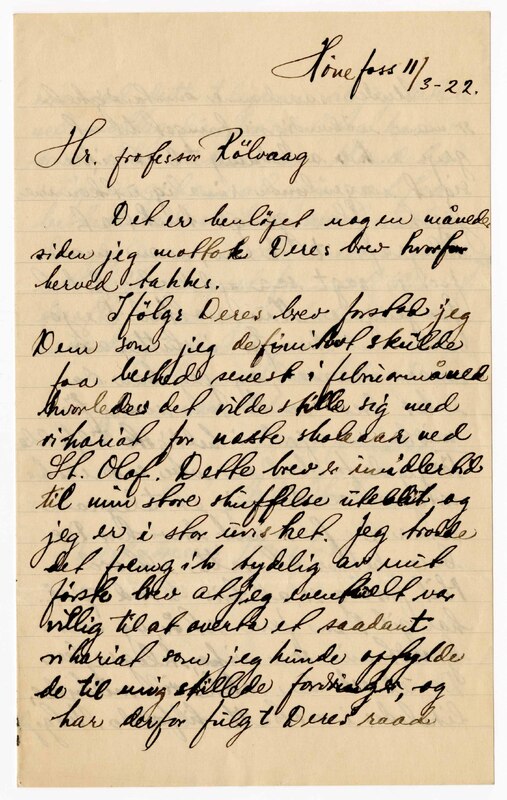 Hönefoss 11/3-22.
Hr. professor Rölvaag
Det er henløpet nogen måneder
siden jeg mottok Deres brev hvorfor
herved takkes.
Ifölge Deres brev forstod jeg
Dem som jeg definitivt skulde
faa besked senest i februarmåned
hvorledes det vilde stille sig med
vikariat for næste skoleaar ved
St. Olaf. Dette brev er imidlertid
til min store skuffelse uteblit og
jeg er i stor uvished. Jeg trodde
det fremgik tydelig av mit
første brev at jeg eventuelt var
villig til at overta et saadant
vikariat som jeg kunde opfylde
de til mig stillede fordringer, og
har derfor fulgt Deres raad